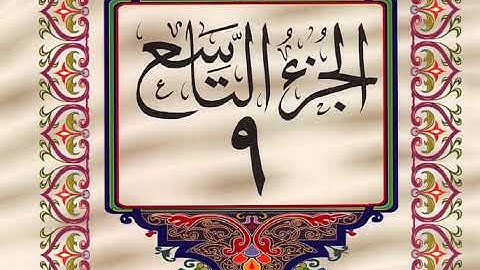 الجُزْءُ التَّاسِع
٩